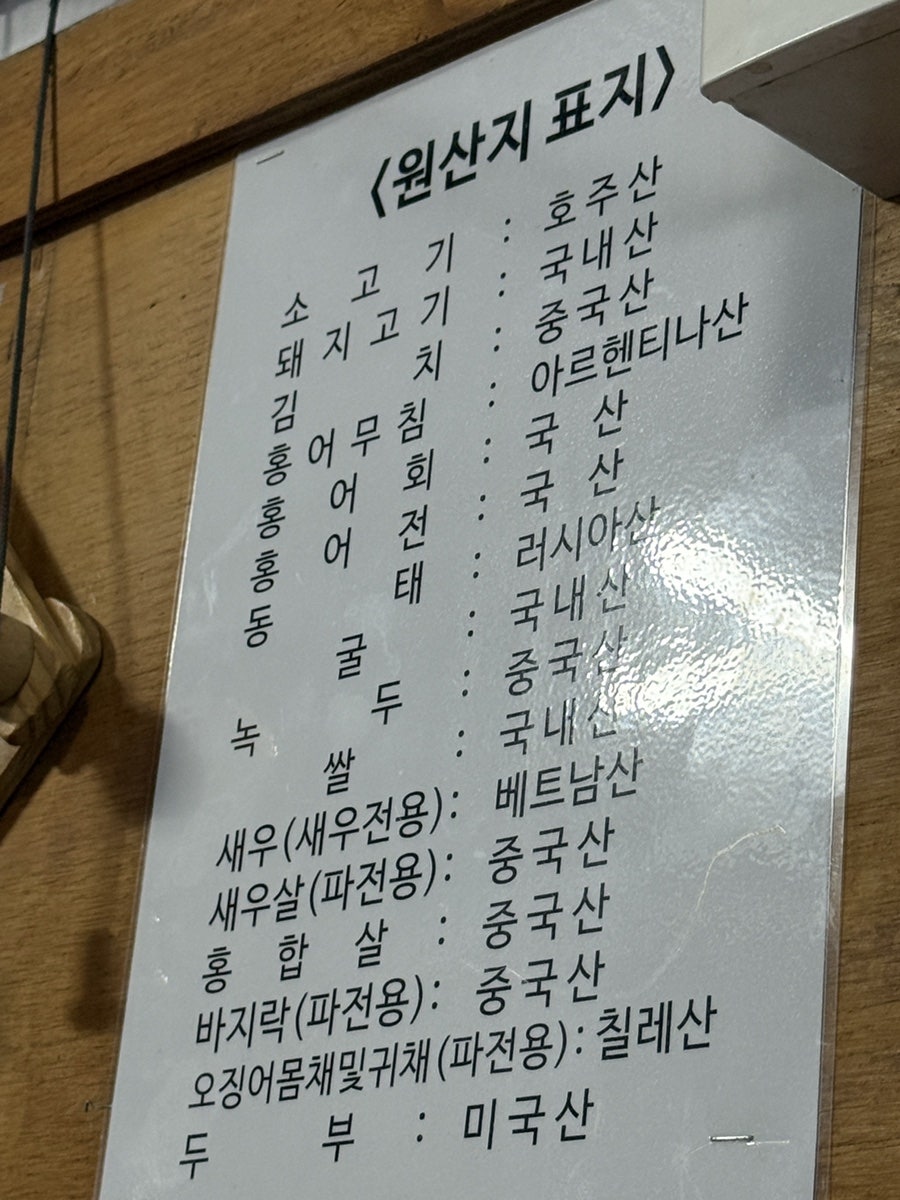 <원산지 표지>
소고기 : 호주산
돼지고기 : 국내산
김치 : 중국산
홍어무침 : 아르헨티나산
홍어회 : 국산
홍어전 : 국산
동태 : 러시아산
굴 : 국내산
녹두 : 중국산
쌀 : 국내산
새우(새우전용) : 베트남산
새우살(파전용) : 중국산
홍합살 : 중국산
바지락(파전용) : 중국산
오징어몸채및귀채(파전용) : 칠레산
두부 : 미국산